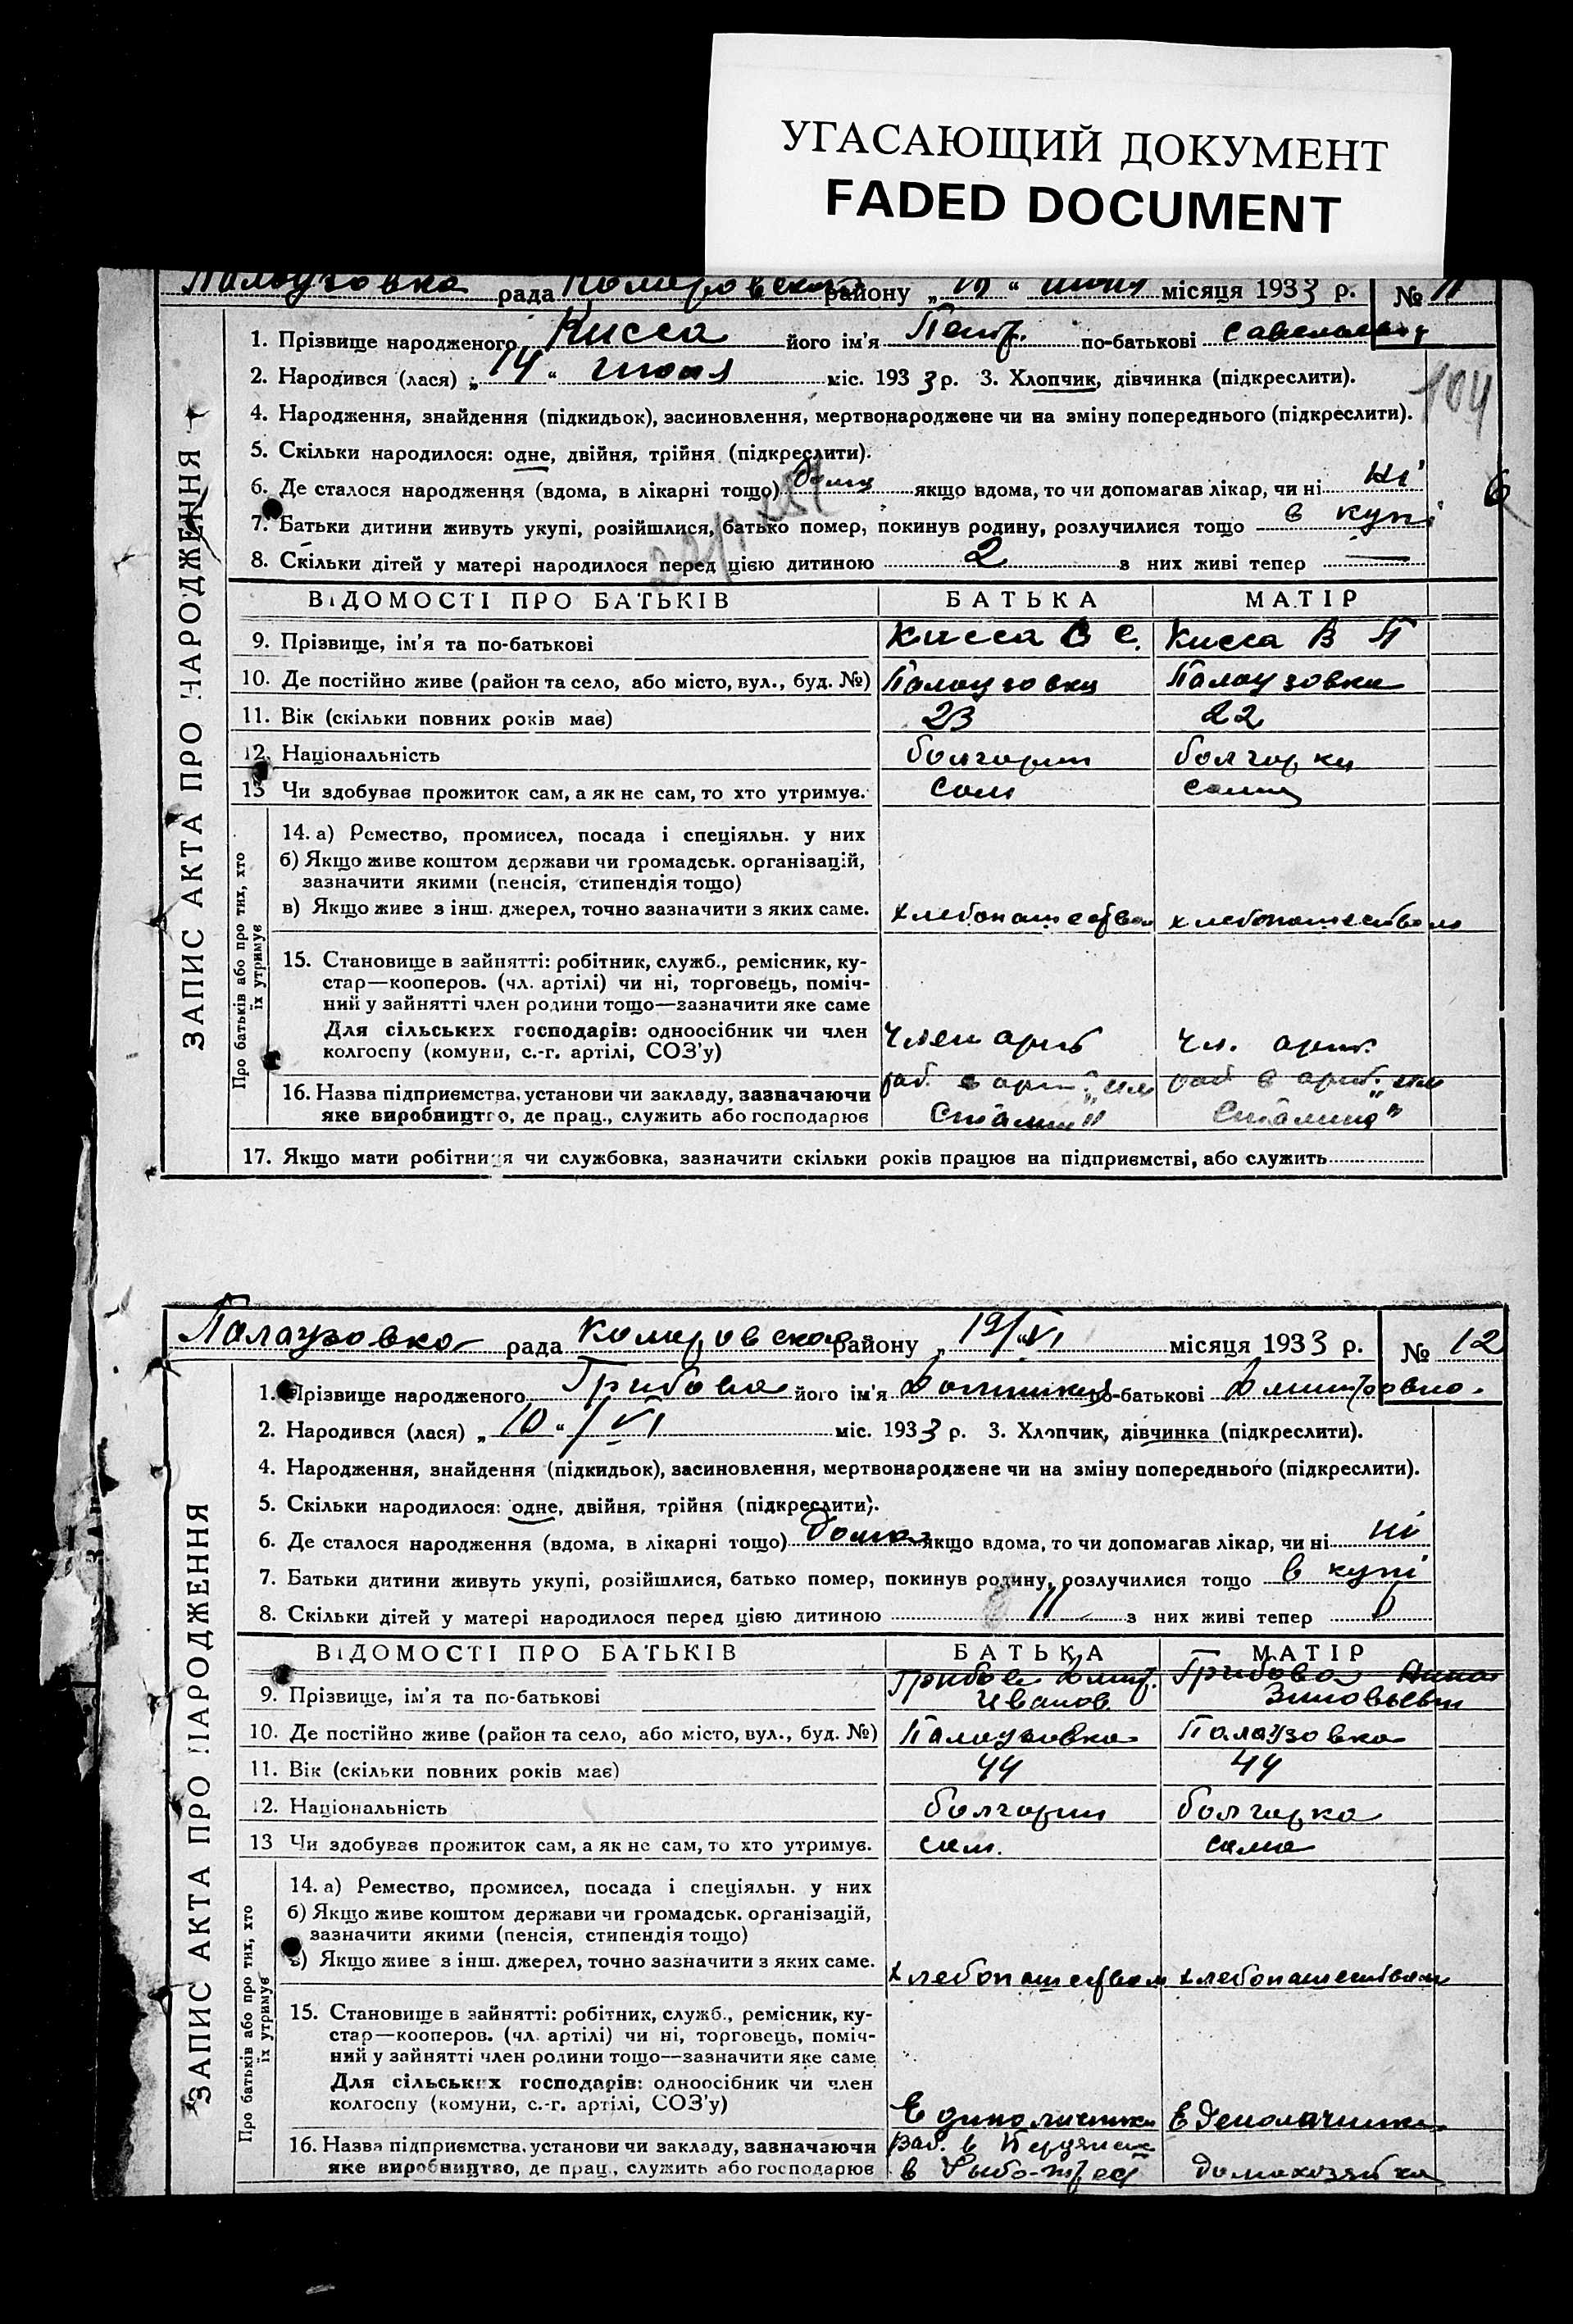 УГАСАЮЩИЙ ДОКУМЕНТ
FADED DOCUMENT
Палаузовка рада району „ “ місяця 1933 р. № 11
1. Прізвище народженого Кисса його ім'я Петр. по-батькові
2. Народився (лася) „ 14 “ міс. 1933 р. 3. Хлопчик, дівчинка (підкреслити).
104
4. Народження, знайдення (підкидьок), засиновлення, мертвонароджене чи на зміну попереднього (підкреслити).
5. Скільки народилося: одне, двійня, трійня (підкреслити).
6. Де сталося народження (вдома, в лікарні тощо) якщо вдома, то чи допомагав лікар, чи ні ні
7. Батьки дитини живуть укупі, розійшлися, батько помер, покинув родину, розлучилися тощо в купі
8. Скільки дітей у матері народилося перед цією дитиною 2 з них живі тепер —
ЗАПИС АКТА ПРО НАРОДЖЕННЯ
ВІДОМОСТІ ПРО БАТЬКІВ БАТЬКА МАТІР
9. Прізвище, ім'я та по-батькові Кисса С С. Кисса В П
10. Де постійно живе (район та село, або місто, вул., буд. №) Палаузовка Палаузовка
11. Вік (скільки повних років має) 23 22
12. Національність болгарин болгарка
13 Чи здобуває прожиток сам, а як не сам, то хто утримує. сам сама
Про батьків або про тих, хто їх утримує
14. а) Ремество, промисел, посада і спеціяльн. у них
б) Якщо живе коштом держави чи громадськ. організацій,
зазначити якими (пенсія, стипендія тощо)
в) Якщо живе з інш. джерел, точно зазначити з яких саме. хлебопашеством хлебопашеством
15. Становище в зайнятті: робітник, служб., ремісник, ку-
стар—кооперов. (чл. артілі) чи ні, торговець, поміч-
ний у зайнятті член родини тощо—зазначити яке саме
Для сільських господарів: одноосібник чи член
колгоспу (комуни, с.-г. артілі, СОЗ'у) член арт чл. арт.
16. Назва підприємства, установи чи закладу, зазначаючи раб. в арт. „им раб в арт. „им
яке виробництво, де прац., служить або господарює Сталин“ Сталина“
17. Якщо мати робітниця чи службовка, зазначити скільки років працює на підприємстві, або служить
Палаузовка рада району „ 19/VI місяця 1933 р. № 12
1. Прізвище народженого Грибова його ім'я по-батькові Дмитровна.
2. Народився (лася) „ 10 “ /VI міс. 1933 р. 3. Хлопчик, дівчинка (підкреслити).
4. Народження, знайдення (підкидьок), засиновлення, мертвонароджене чи на зміну попереднього (підкреслити).
5. Скільки народилося: одне, двійня, трійня (підкреслити).
6. Де сталося народження (вдома, в лікарні тощо) дома якщо вдома, то чи допомагав лікар, чи ні ні
7. Батьки дитини живуть укупі, розійшлися, батько помер, покинув родину, розлучилися тощо в купі
8. Скільки дітей у матері народилося перед цією дитиною 11 з них живі тепер 6
ЗАПИС АКТА ПРО НАРОДЖЕННЯ
ВІДОМОСТІ ПРО БАТЬКІВ БАТЬКА МАТІР
Грибов Дмит. Грибова Анна
9. Прізвище, ім'я та по-батькові Иванов. Зиновьевн
10. Де постійно живе (район та село, або місто, вул., буд. №) Палаузовка Палаузовка
11. Вік (скільки повних років має) 44 44
12. Національність болгарин болгарка
13 Чи здобуває прожиток сам, а як не сам, то хто утримує. сам. сама
Про батьків або про тих, хто їх утримує
14. а) Ремество, промисел, посада і спеціяльн. у них
б) Якщо живе коштом держави чи громадськ. організацій,
зазначити якими (пенсія, стипендія тощо)
в) Якщо живе з інш. джерел, точно зазначити з яких саме. хлебопашеством хлебопашеством
15. Становище в зайнятті: робітник, служб., ремісник, ку-
стар—кооперов. (чл. артілі) чи ні, торговець, поміч-
ний у зайнятті член родини тощо—зазначити яке саме
Для сільських господарів: одноосібник чи член
колгоспу (комуни, с.-г. артілі, СОЗ'у)
16. Назва підприємства, установи чи закладу, зазначаючи Раб. в
яке виробництво, де прац., служить або господарює в Рыбо-трест домохозяйка